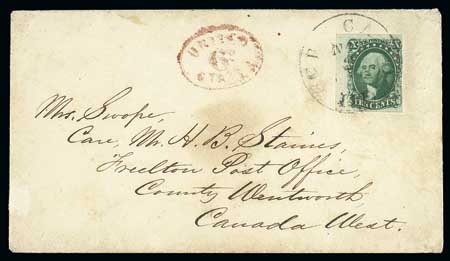 UNITED
6d
STATES
TEN CENTS
Mrs. Swope,
Care, Mr. H. B. Staines,
Freelton Post Office,
County Wentworth,
Canada West.